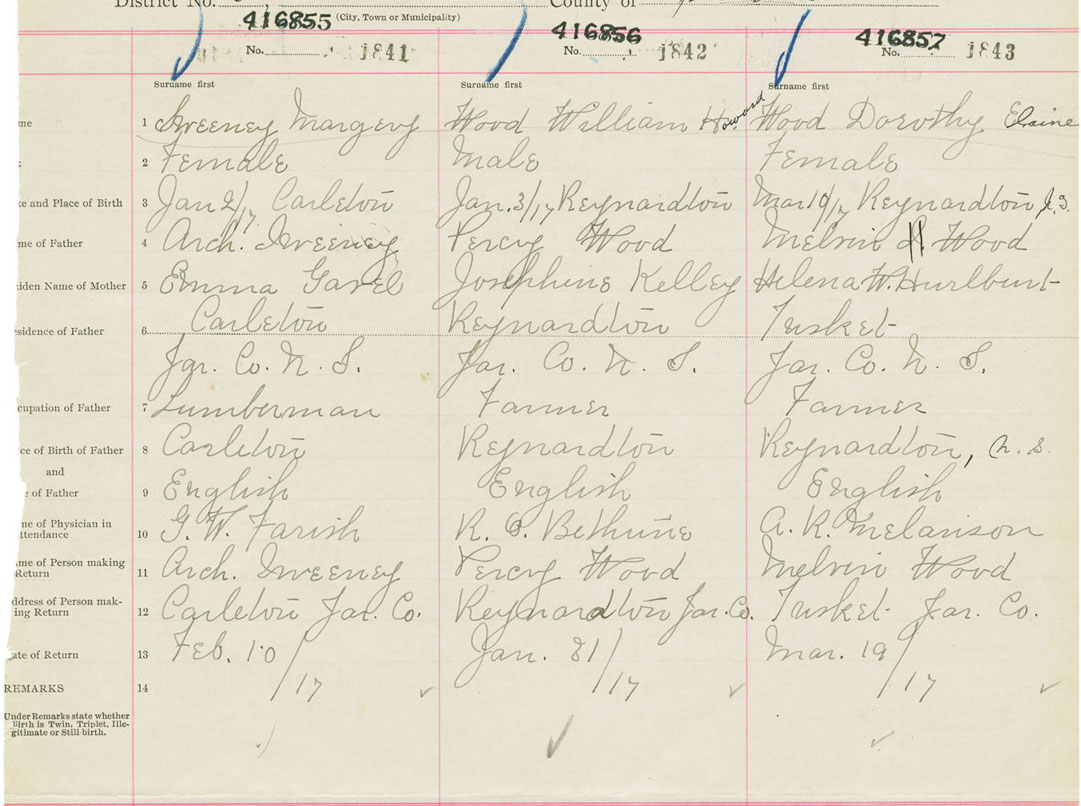 District No. County of
416855 (City, Town or Municipality) 416856 416857
No. 1841 No. 1842 No. 1843
Surname first Surname first Surname first
me 1 Sweeney Margery Wood William Howard Wood Dorothy Elaine
2 Female Male Female
te and Place of Birth 3 Jan 2/17 Carleton Jan. 3/17 Reynardton Mar 10/17 Reynardton N.S.
me of Father 4 Arch. Sweeney Percy Wood Melvin H Wood
iden Name of Mother 5 Emma Gavel Josephine Kelley Helena W. Hurlburt
sidence of Father 6 Carleton Reynardton Tusket
Yar. Co. N. S. Yar. Co. N. S. Yar. Co. N. S.
cupation of Father 7 Lumberman Farmer Farmer
ce of Birth of Father 8 Carleton Reynardton Reynardton, N. S.
and
e of Father 9 English English English
me of Physician in
ttendance 10 G. W. Farish K. C. Bethune A. R. Melanson
me of Person making
Return 11 Arch. Sweeney Percy Wood Melvin Wood
ddress of Person mak-
ing Return 12 Carleton Yar. Co. Reynardton Yar. Co. Tusket Yar. Co.
ate of Return 13 Feb. 10/17 Jan. 31/17 Mar. 19/17
REMARKS 14
Under Remarks state whether
Birth is Twin, Triplet, Ille-
gitimate or Still-birth.